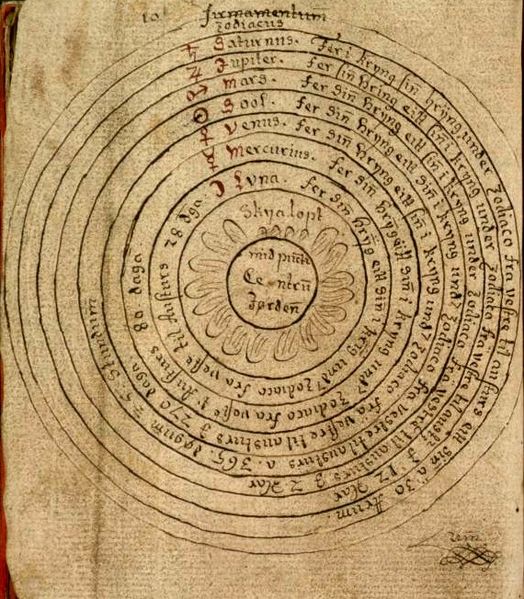 10
firmamentum
Zodiacus
♄ Saturnus. Fer i kryng sin hryng under Zodiaco fra vestre til austurs eitt sin a 30 Arum.
♃ Jupiter. fer sin hring eitt sin i kryng under Zodiaco fra vestre til austurs a 12 Aar
♂ Mars. fer sin hryng eitt sin i kryng under Zodiaco fra vestre til austurs a 2 Aar
☉ Sool. fer sin hryng eitt sin i kryng und Zodiaco fra vestre til austurs a. 365. dögum 5 Stundum
♀ Venus. fer sin hryng eitt sin i kryng und Zodiaco fra vestre til austurs 270 daga.
☿ Mercurius. fer sin hryng eitt sin i kryng und Zodiaco fra vestre til austurs 80 daga
☽ Lvna. fer sin hryng eitt sin i kryng und Zodiaco fra vestre til austurs 28 daga
Skyalopt
mid punct
Centru
Jorden